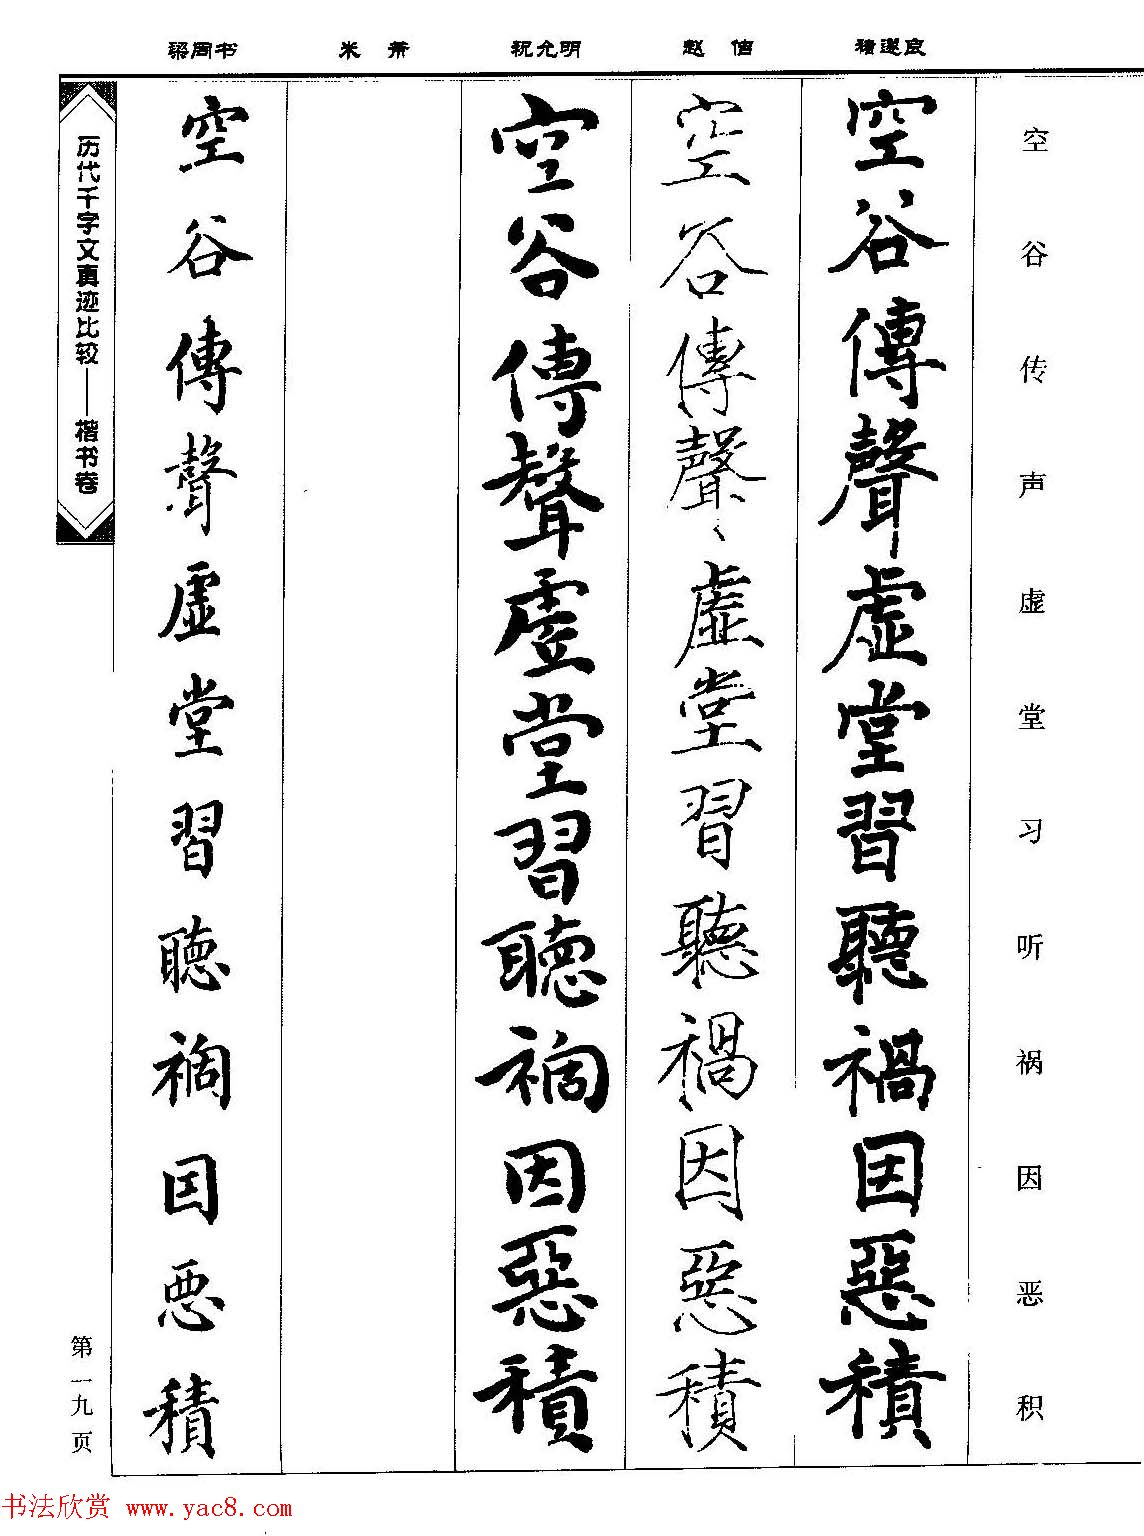 空谷传声虚堂习听祸因恶积
褚遂良
空谷傳聲虚堂習聽禍因惡積
赵佶
空谷傳聲虚堂習聽禍因惡積
祝允明
空谷傳聲虚堂習聽禍因惡積
米芾
梁同书
空谷傳聲虚堂習聽禍因悪積
历代千字文真迹比较——楷书卷
第一九页
书法欣赏 www.yac8.com